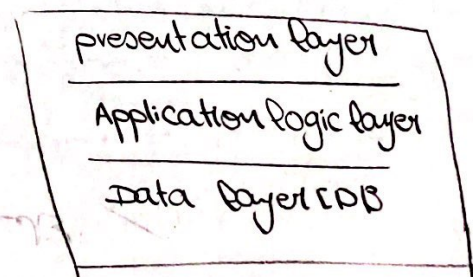 presentation layer
Application logic layer
Data layer (DB